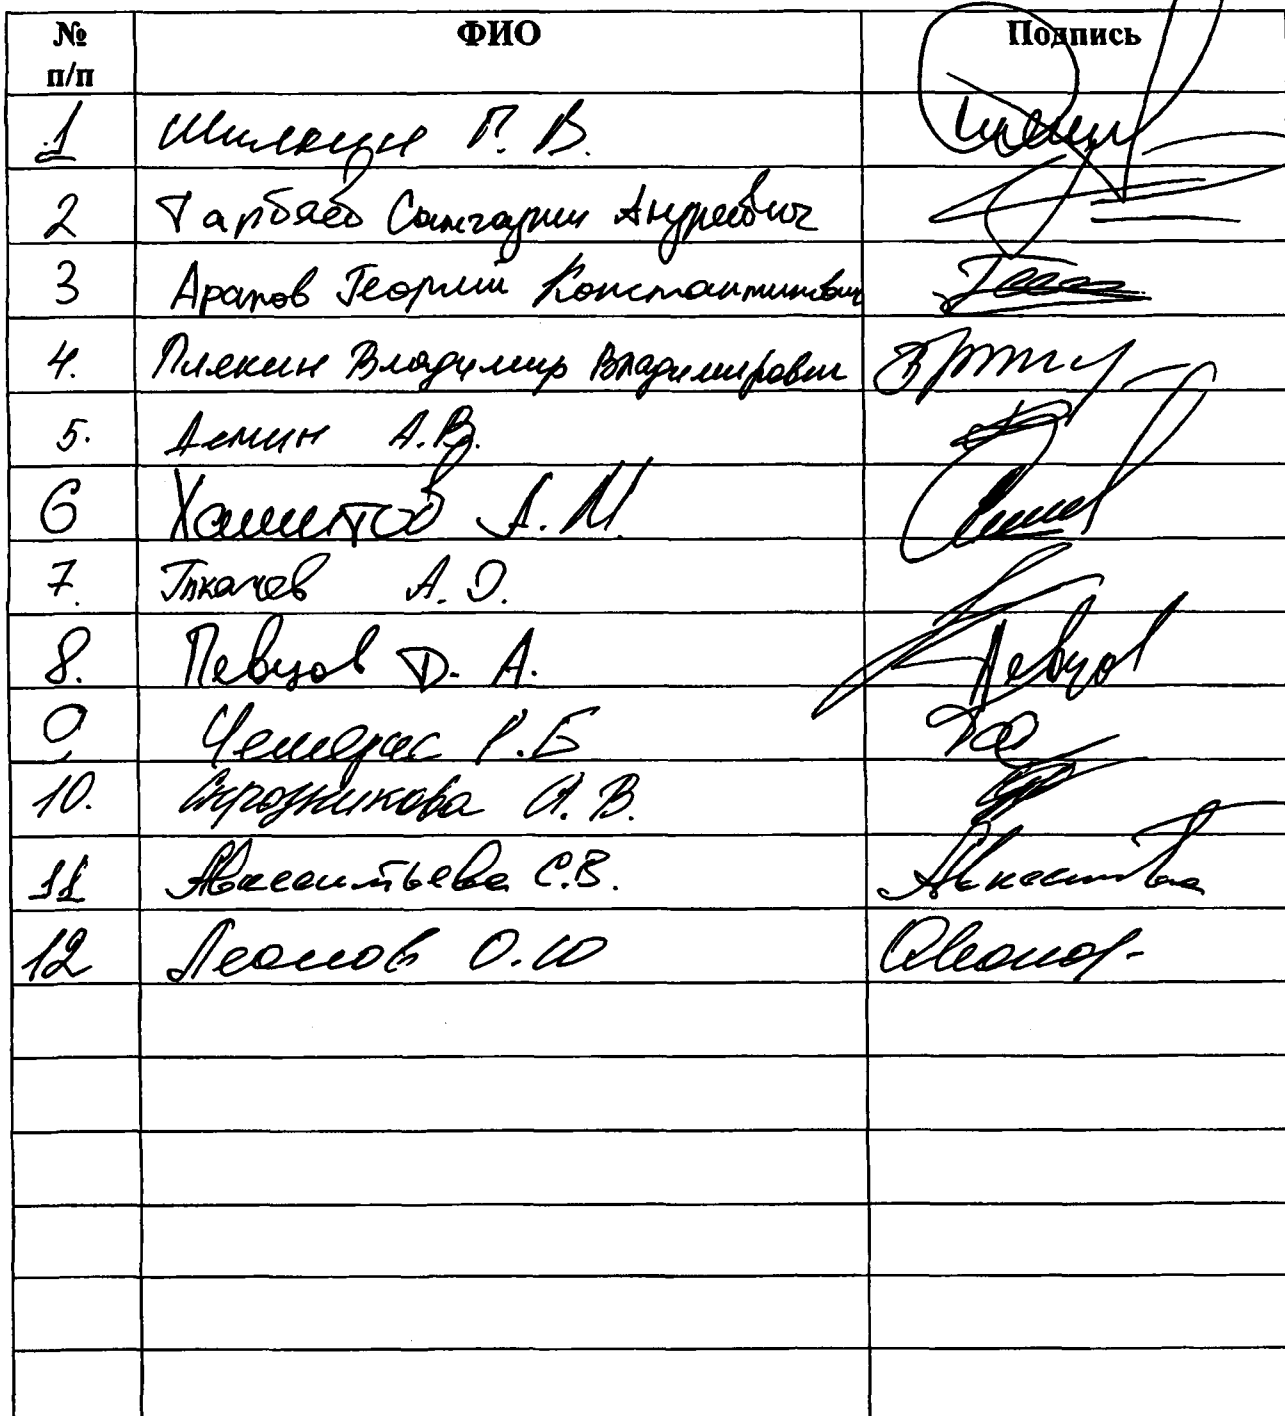 № п/п ФИО Подпись
1 Шилкин Г. В.
2 Тарбаев Сангаджи Андреевич
3 Арапов Георгий Константинович
4. Плякин Владимир Владимирович
5. Демин А.В.
6 Хамитов А.М.
7. Ткачев А.О.
8. Певцов Д. А. Певцов
9 Чемерис Р.Б
10. Дрозникова А.В.
11 Авксентьева С.В. Авксентьева
12 Леонов О.Ю Леонов